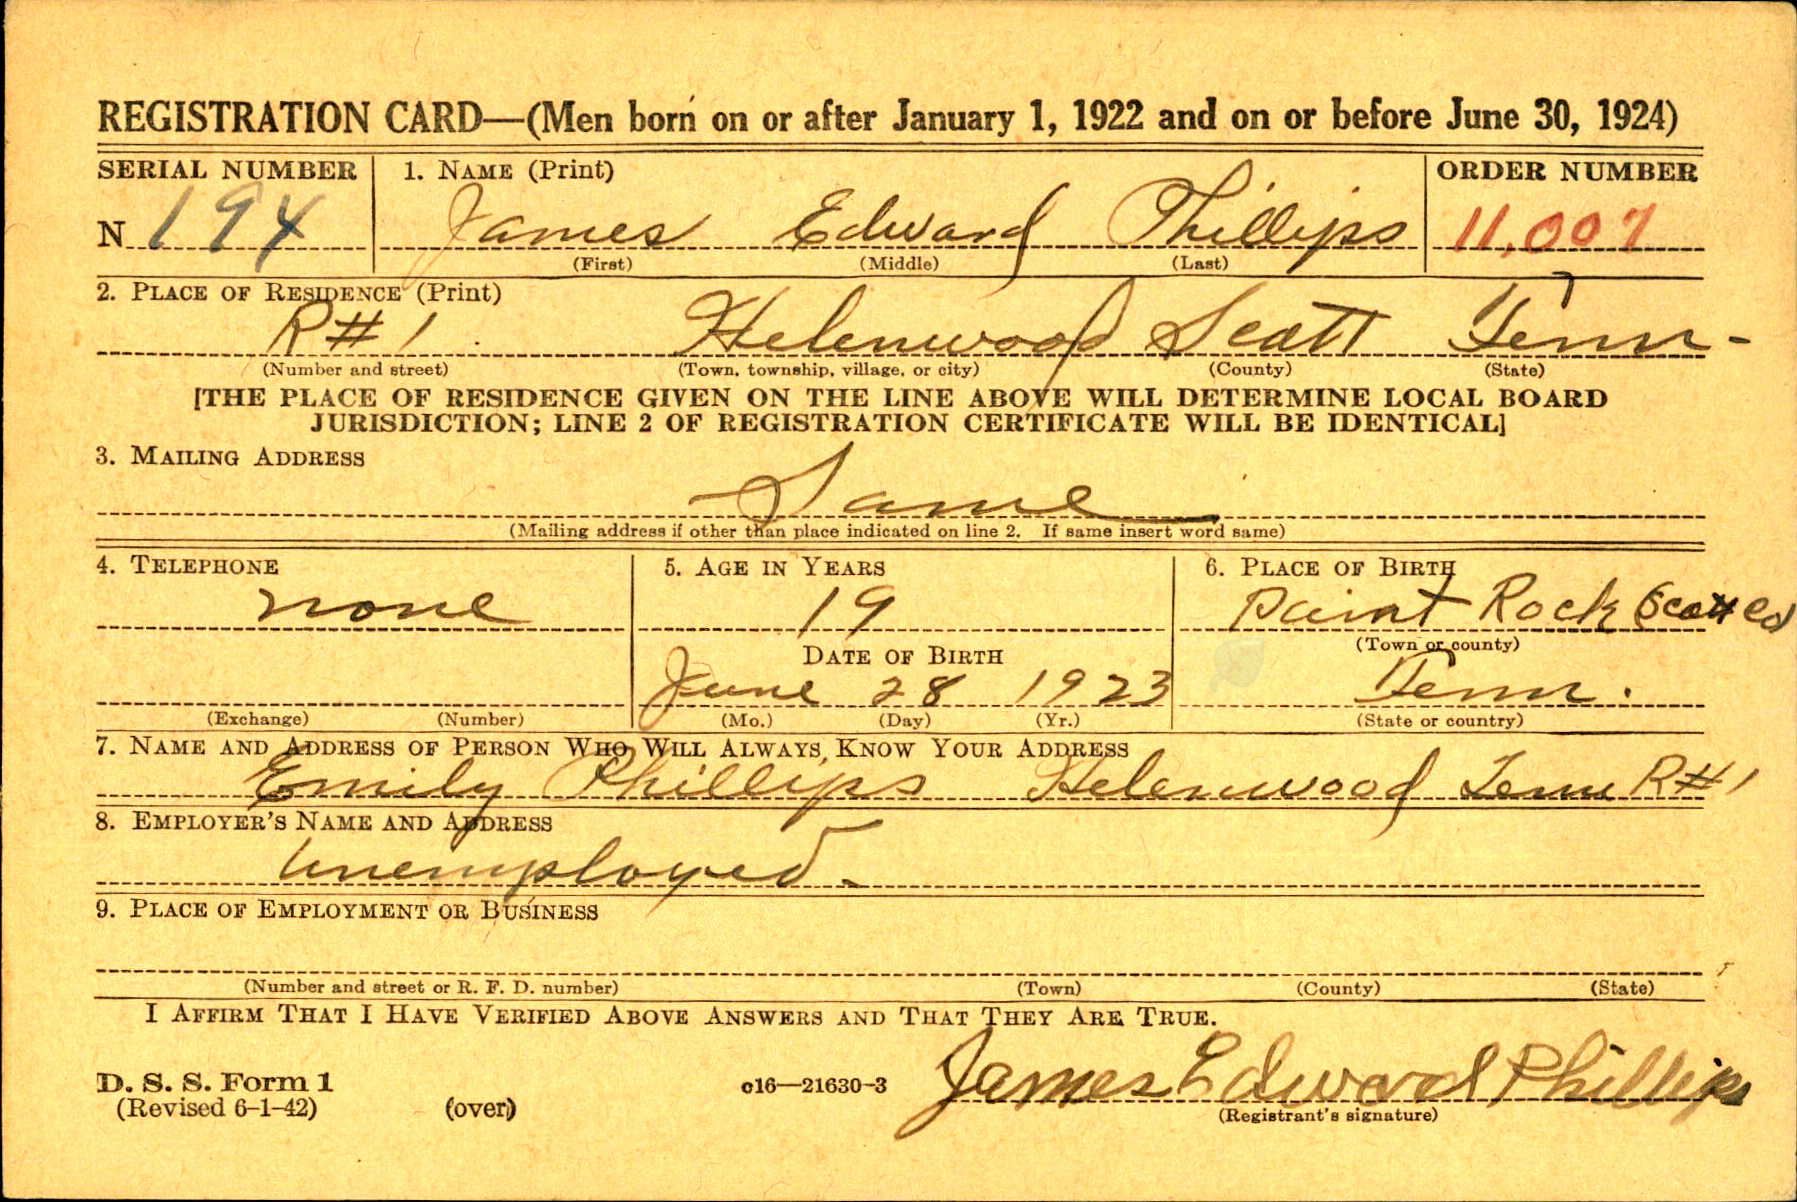 REGISTRATION CARD—(Men born on or after January 1, 1922 and on or before June 30, 1924)
SERIAL NUMBER 1. NAME (Print) ORDER NUMBER
N 194 James Edward Phillips 11,007
(First) (Middle) (Last)
2. PLACE OF RESIDENCE (Print)
R#1 Helenwood Scott Tenn-
(Number and street) (Town, township, village, or city) (County) (State)
[THE PLACE OF RESIDENCE GIVEN ON THE LINE ABOVE WILL DETERMINE LOCAL BOARD
JURISDICTION; LINE 2 OF REGISTRATION CERTIFICATE WILL BE IDENTICAL]
3. MAILING ADDRESS
Same
(Mailing address if other than place indicated on line 2. If same insert word same)
4. TELEPHONE 5. AGE IN YEARS 6. PLACE OF BIRTH
none 19 Paint Rock Scott Co
DATE OF BIRTH (Town or county)
June 28 1923 Tenn.
(Exchange) (Number) (Mo.) (Day) (Yr.) (State or country)
7. NAME AND ADDRESS OF PERSON WHO WILL ALWAYS KNOW YOUR ADDRESS
Emily Phillips Helenwood Tenn R#1
8. EMPLOYER'S NAME AND ADDRESS
Unemployed.
9. PLACE OF EMPLOYMENT OR BUSINESS
(Number and street or R. F. D. number) (Town) (County) (State)
I AFFIRM THAT I HAVE VERIFIED ABOVE ANSWERS AND THAT THEY ARE TRUE.
D. S. S. Form 1 c16—21630-3 James Edward Phillips
(Revised 6-1-42) (over) (Registrant's signature)